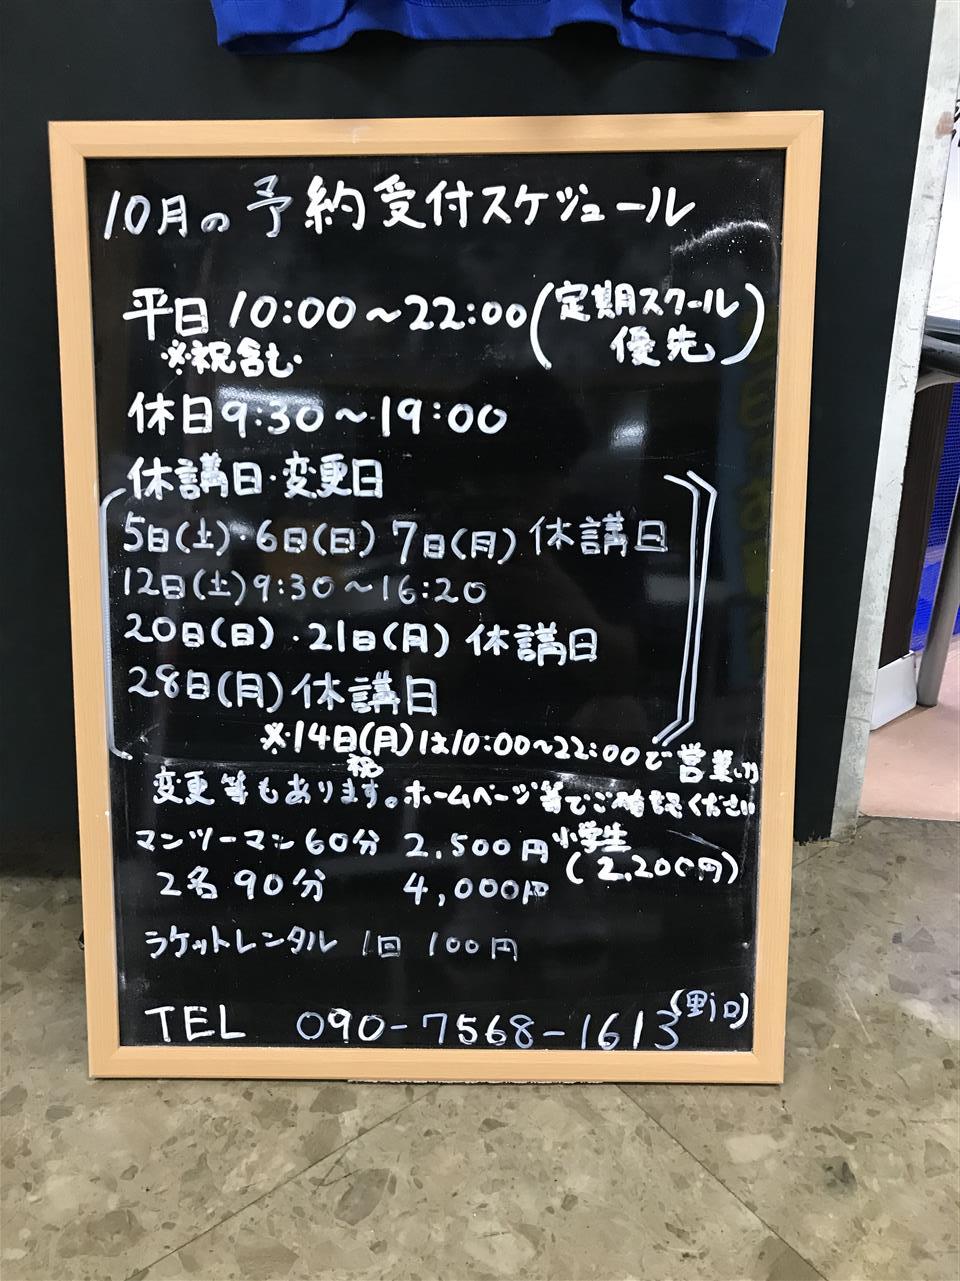 10月の予約受付スケジュール
平日 10:00～22:00(定期スクール優先)
※祝含む
休日9:30～19:00
休講日・変更日
5日(土)・6日(日) 7日(月) 休講日
12日(土)9:30～16:20
20日(日)・21日(月) 休講日
28日(月)休講日
※14日(月)は10:00～22:00で営業
祝
変更等もあります。ホームページ等でご確認ください
マンツーマン60分 2,500円 小学生(2,200円)
2名90分 4,000円
ラケットレンタル 1回 100円
TEL 090-7568-1613(野口)